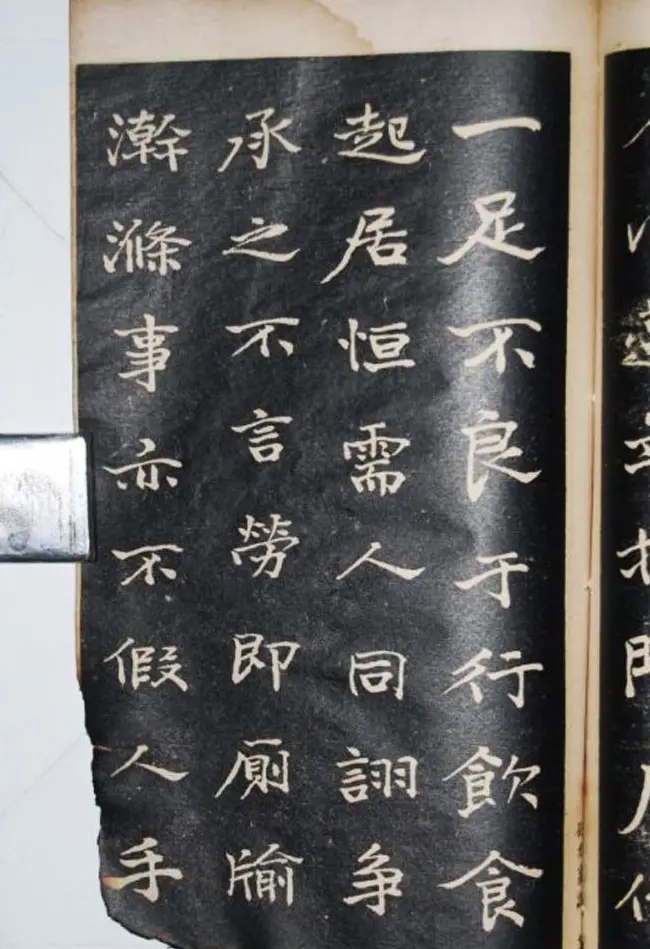 一足不良于行飲食
起居恒需人同詡争
承之不言勞即廁牏
澣滌事亦不假人手